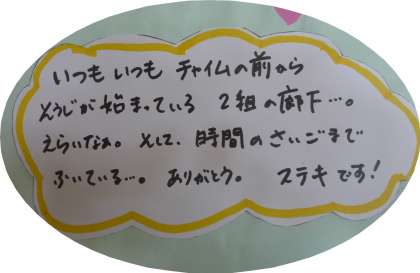 いつも いつも チャイムの前から
そうじが始まっている 2組の廊下…。
えらいなぁ。そして、時間のさいごまで
ふいている…。ありがとう。 ステキです!